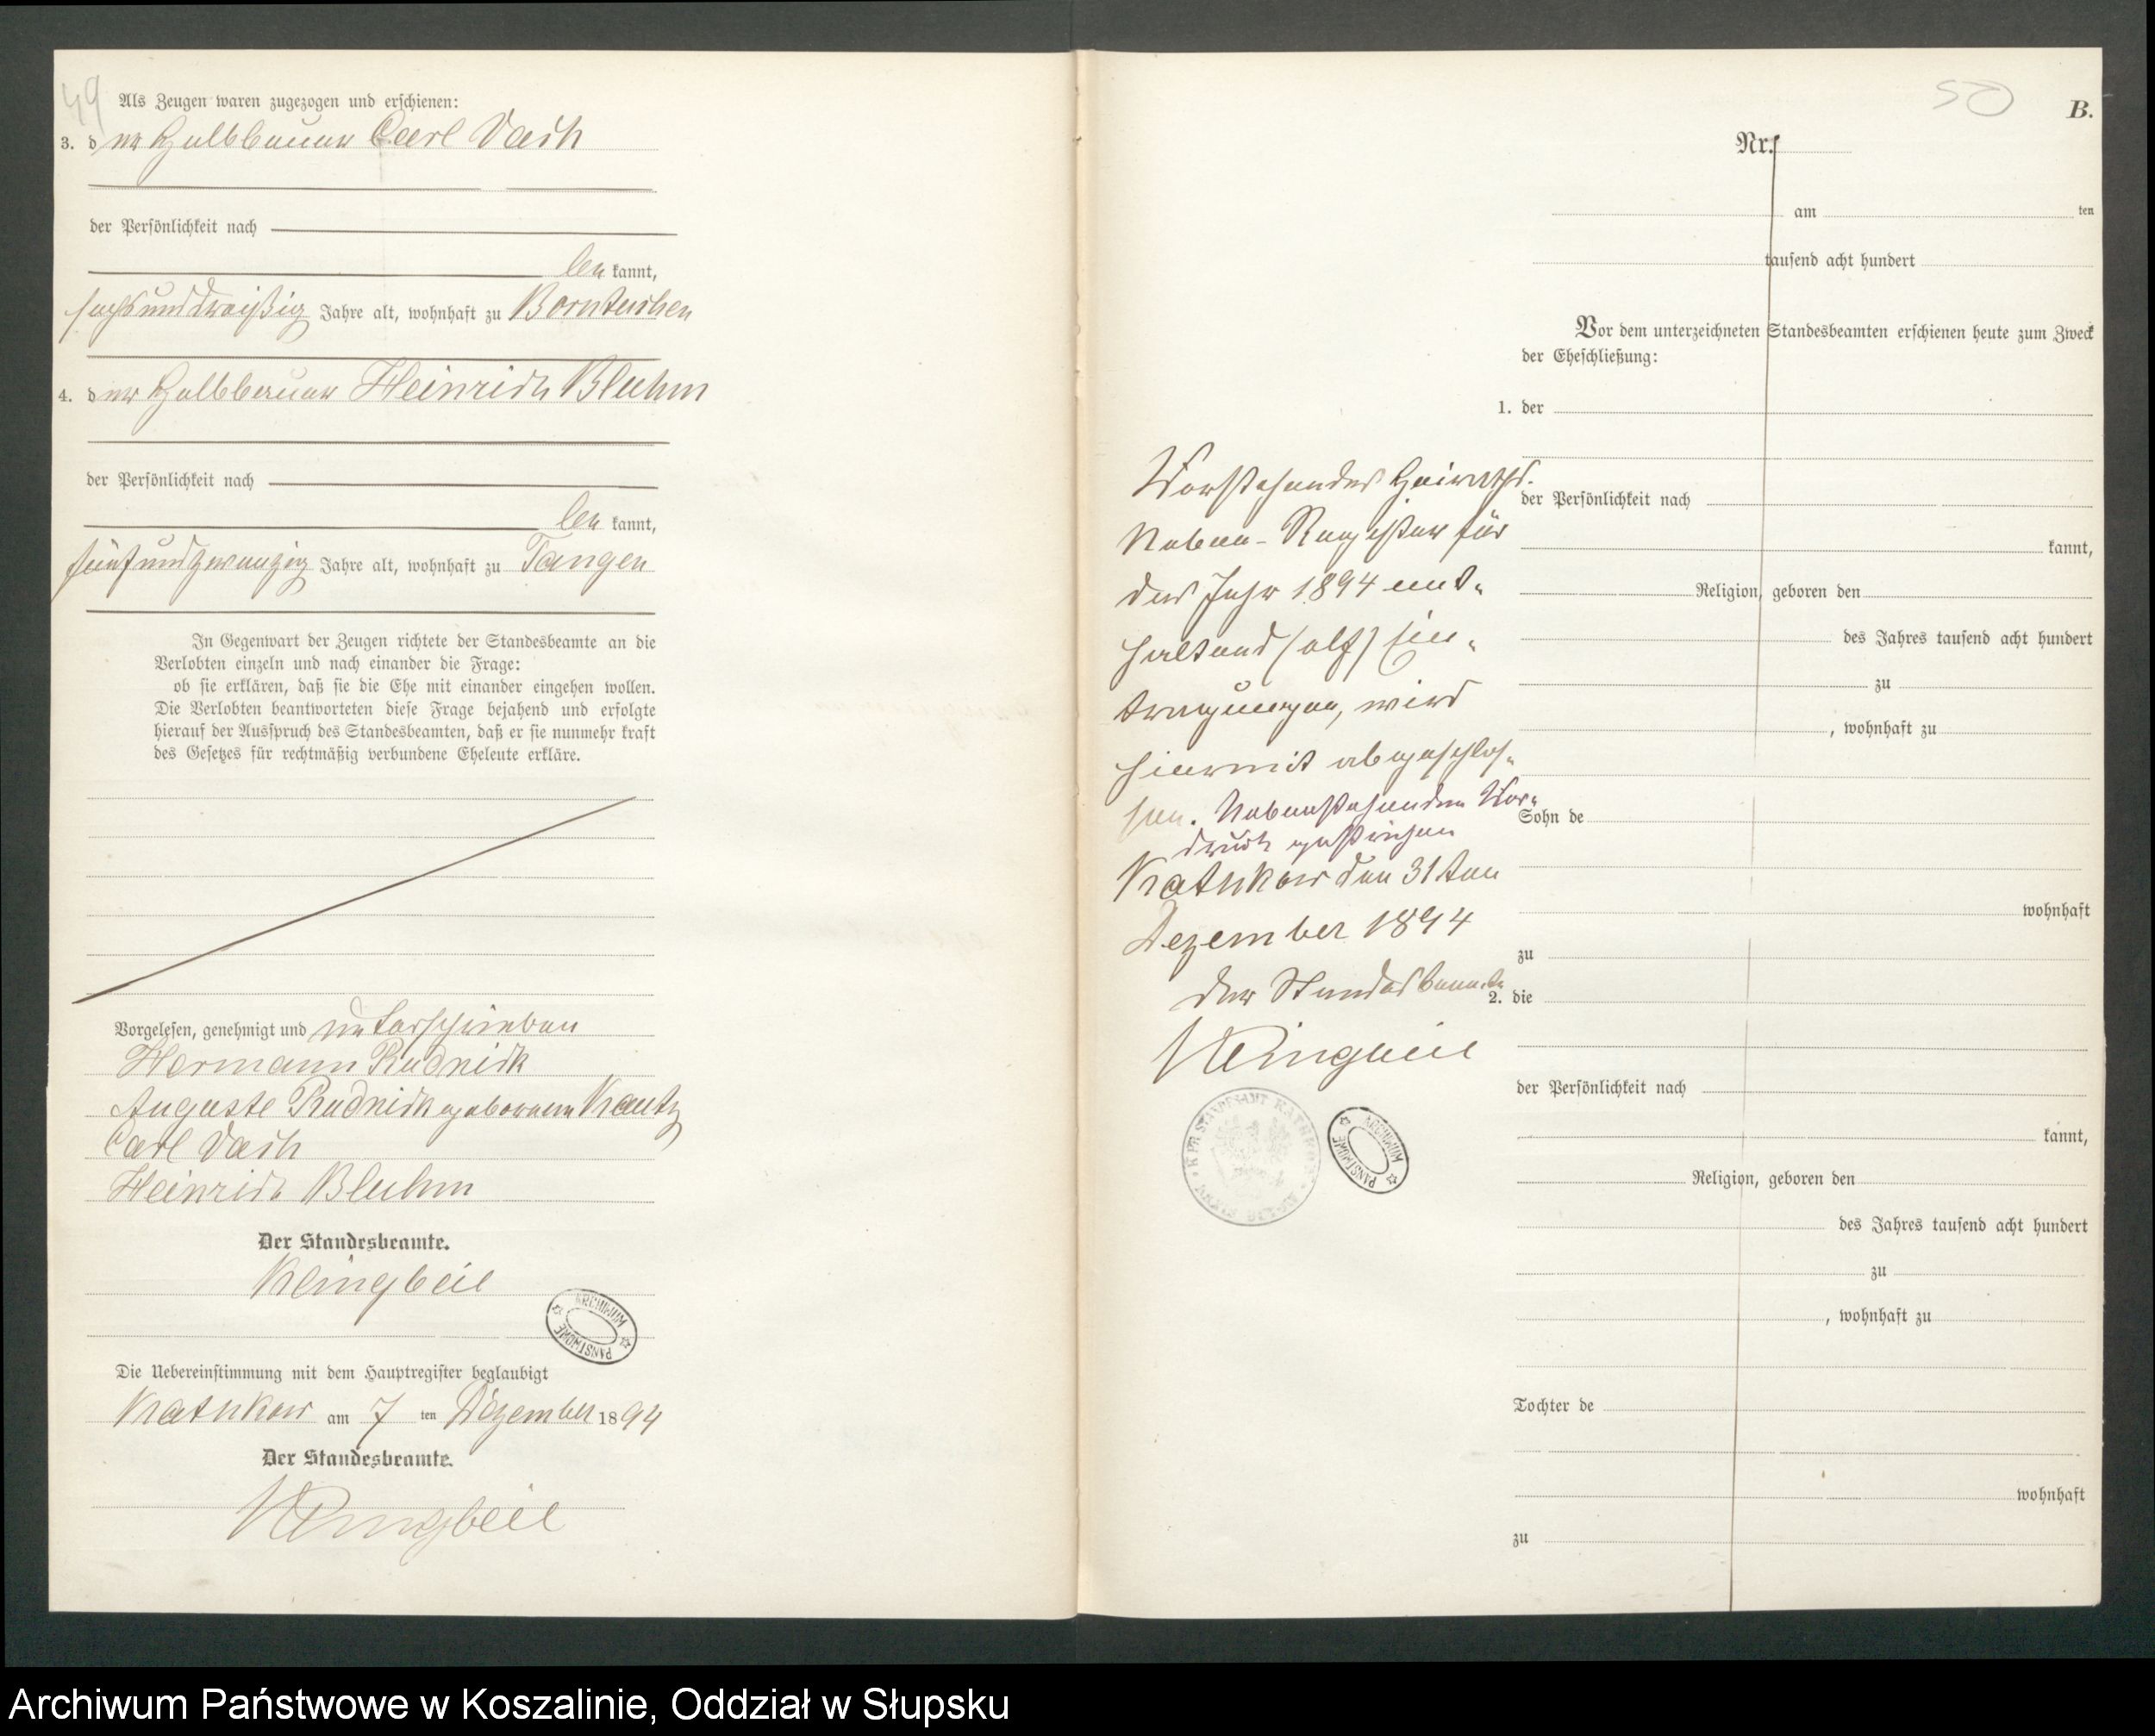 49
Als Zeugen waren zugezogen und erschienen:
3. der Halbbauer Carl Dasch
der Persönlichkeit nach
be kannt,
sechsunddreißig Jahre alt, wohnhaft zu Borntuchen
4. der Halbbauer Heinrich Bluhm
der Persönlichkeit nach
be kannt,
fünfundzwanzig Jahre alt, wohnhaft zu Tangen
In Gegenwart der Zeugen richtete der Standesbeamte an die
Verlobten einzeln und nach einander die Frage:
ob sie erklären, daß sie die Ehe mit einander eingehen wollen.
Die Verlobten beantworteten diese Frage bejahend und erfolgte
hierauf der Ausspruch des Standesbeamten, daß er sie nunmehr kraft
des Gesetzes für rechtmäßig verbundene Eheleute erkläre.
Vorgelesen, genehmigt und unterschrieben
Hermann Rudnick
Auguste Rudnick geborene Kautz
Carl Dasch
Heinrich Bluhm
Der Standesbeamte.
Klingbeil
ARCHIWUM PAŃSTWOWE
Die Uebereinstimmung mit dem Hauptregister beglaubigt
Kathkow am 7 ten Dezember 1894
Der Standesbeamte.
Klingbeil
50
B.
Nr.
am ten
tausend acht hundert
Vor dem unterzeichneten Standesbeamten erschienen heute zum Zweck
der Eheschließung:
1. der
der Persönlichkeit nach
kannt,
Religion, geboren den
des Jahres tausend acht hundert
zu
, wohnhaft zu
Sohn de
wohnhaft
zu
2. die
der Persönlichkeit nach
kannt,
Religion, geboren den
des Jahres tausend acht hundert
zu
, wohnhaft zu
Tochter de
wohnhaft
zu
Vorstehendes Heiraths-
Neben-Register für
das Jahr 1894 ent-
haltend (elf) Ein-
tragungen, wird
hiermit abgeschlos-
sen. Nebenstehenden Vor-
druck gestrichen
Kathkow den 31ten
Dezember 1894
Der Standesbeamte
Klingbeil
KPR. STANDESAMT KATHKOW
ARCHIWUM PAŃSTWOWE
Archiwum Państwowe w Koszalinie, Oddział w Słupsku